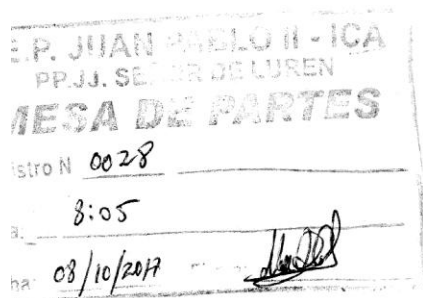 E.P. JUAN PABLO II - ICA
PP.JJ. SEÑOR DE LUREN
MESA DE PARTES
istro N 0028
a. 8:05
ha: 08/10/2017